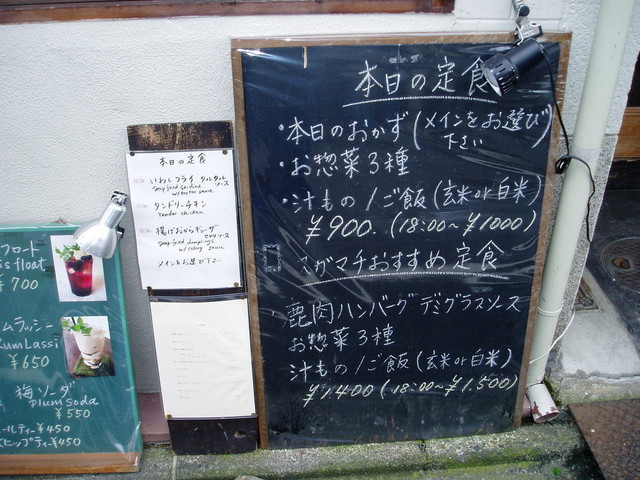 本日の定食
・本日のおかず(メインをお選び下さい)
・お惣菜3種
・汁もの/ご飯(玄米or白米)
¥900.(18:00〜¥1000)
マガマチおすすめ定食
鹿肉ハンバーグ デミグラスソース
お惣菜3種
汁もの/ご飯(玄米or白米)
¥1.400(18:00〜¥1.500)
本日の定食
いわしフライ タルタルソース
タンドリーチキン
Tandor chicken
揚げおからギョーザ
メインをお選び下さい
フロート
s float
¥700
ムラッシー
umLassi
¥650
梅ソーダ
Plum soda
¥550
ールティー ¥450
ヒップティー ¥450